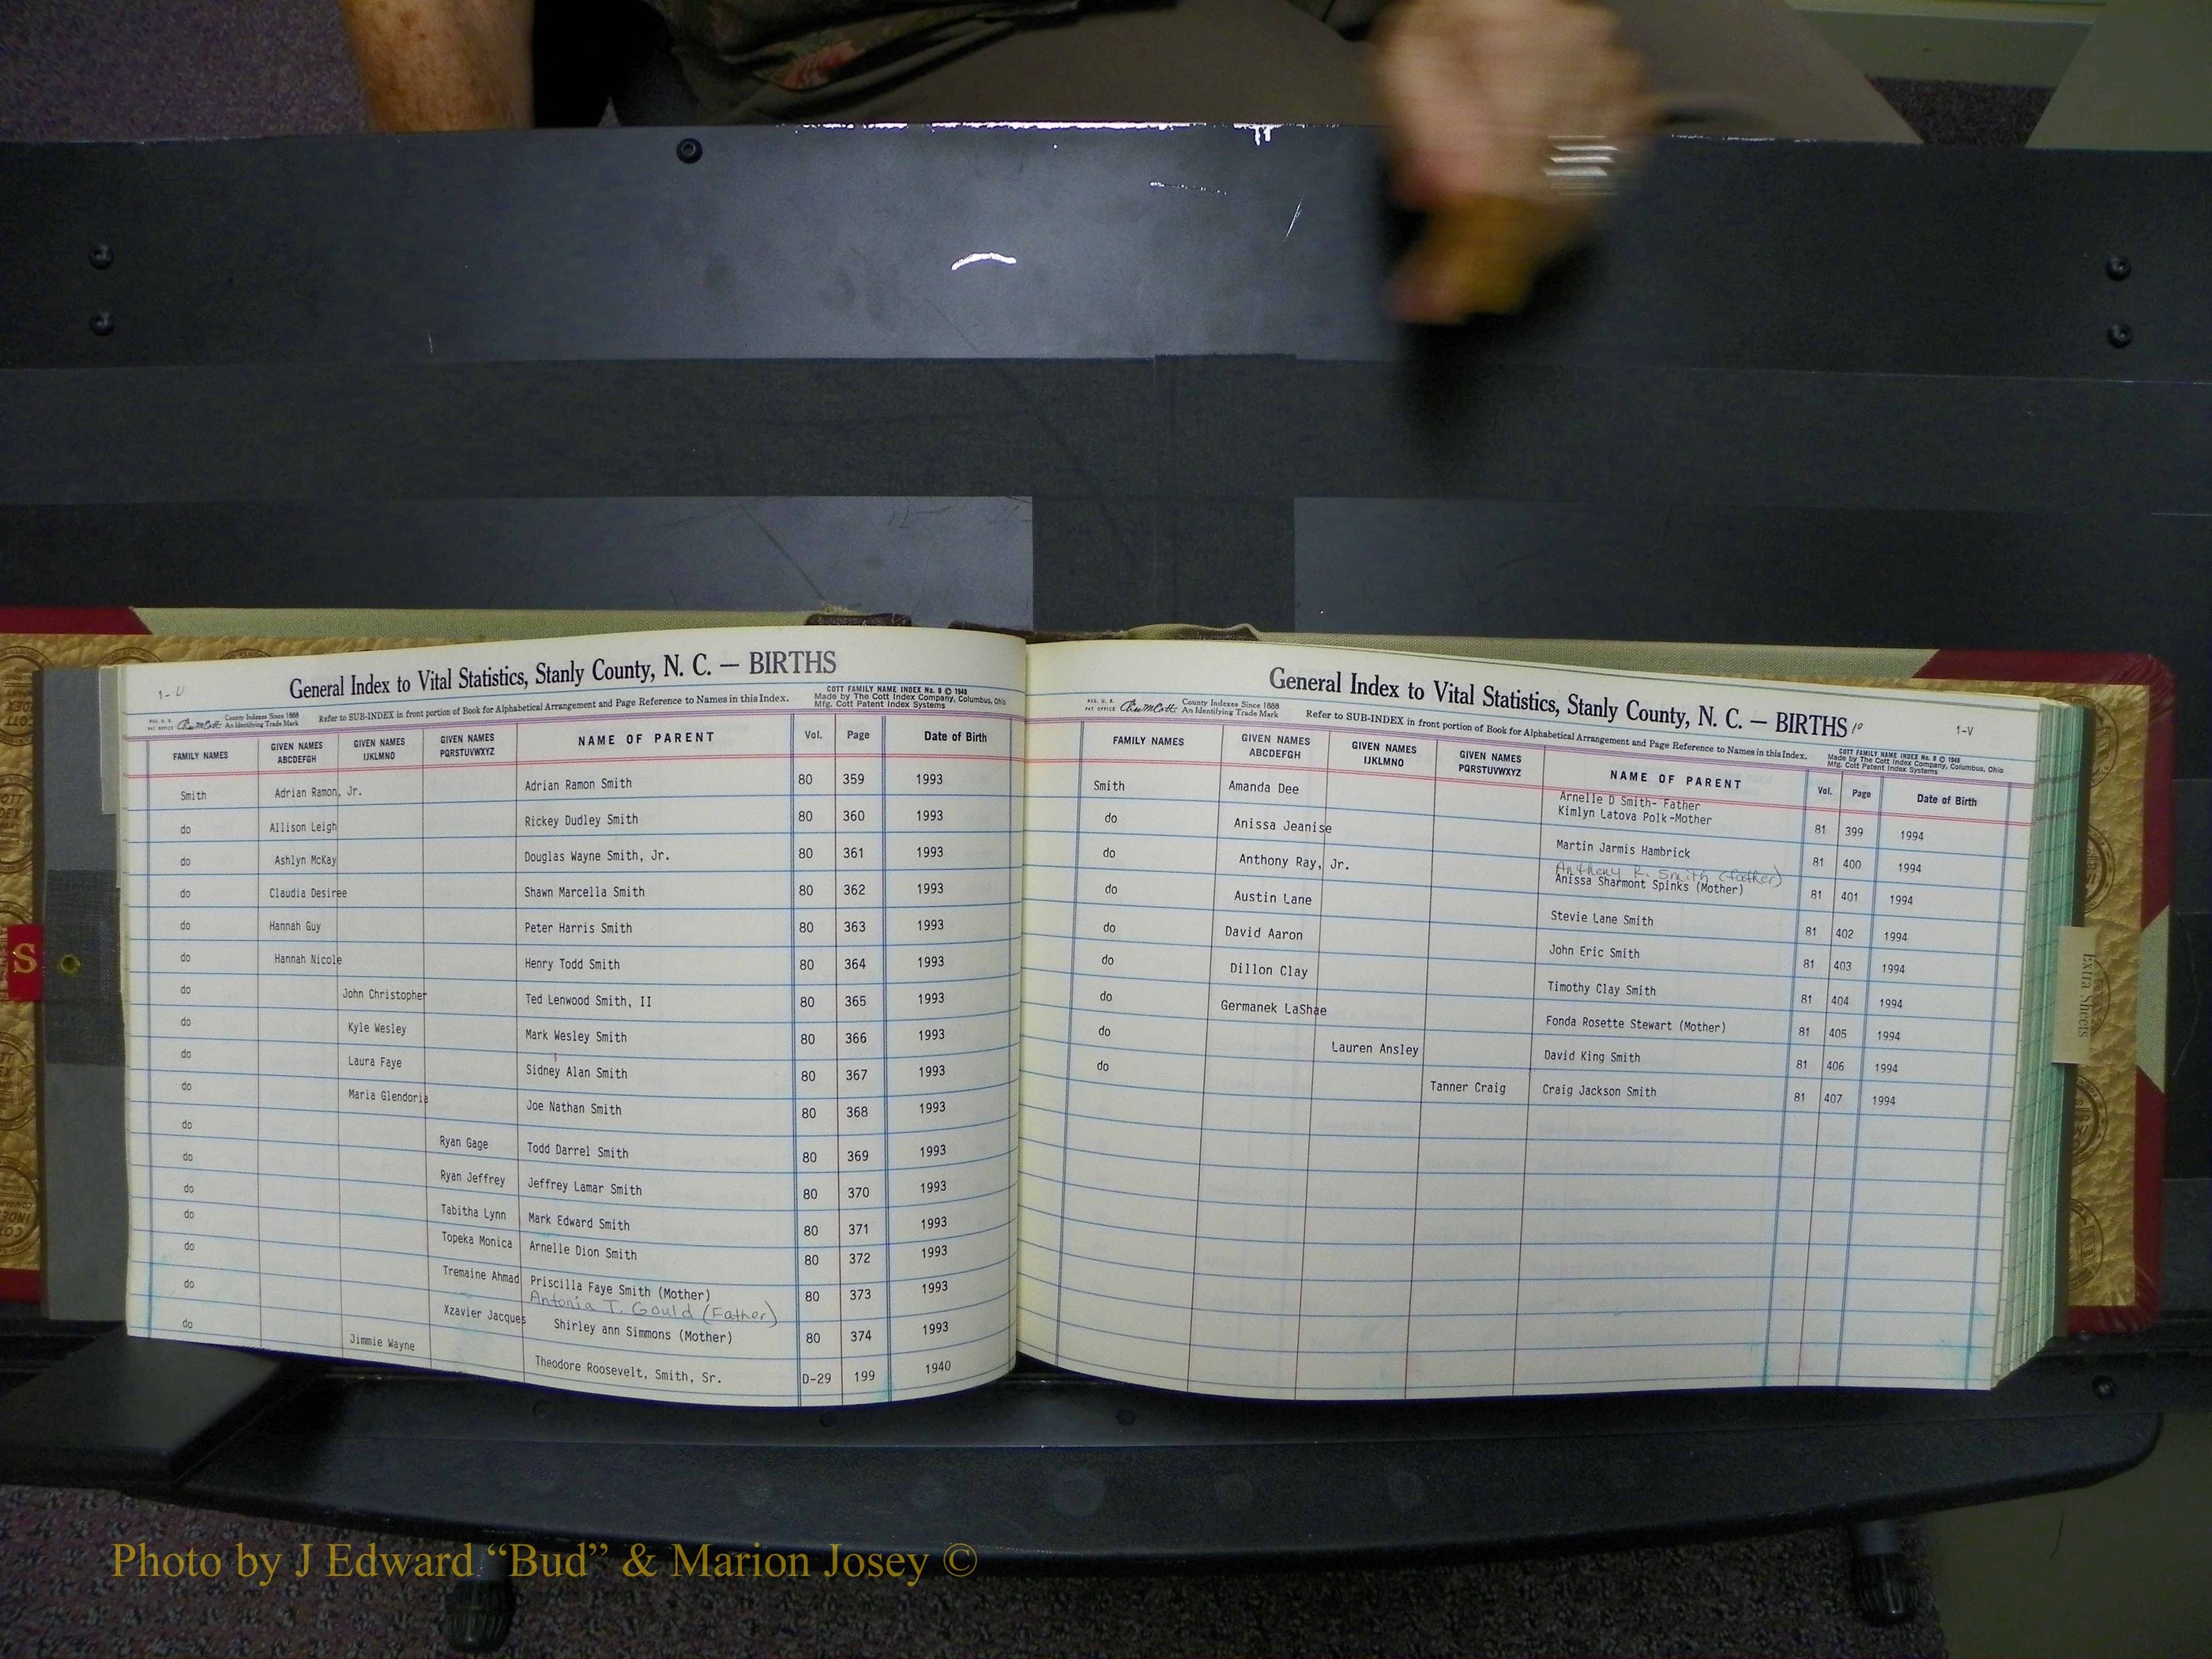 1- U
General Index to Vital Statistics, Stanly County, N. C. — BIRTHS
COTT FAMILY NAME INDEX No. 8 © 1949
Made by The Cott Index Company, Columbus, Ohio
Mfg. Cott Patent Index Systems
REG. U. S. PAT OFFICE County Indexes Since 1888
An Identifying Trade Mark
Refer to SUB-INDEX in front portion of Book for Alphabetical Arrangement and Page Reference to Names in this Index.
FAMILY NAMES GIVEN NAMES ABCDEFGH GIVEN NAMES IJKLMNO GIVEN NAMES PQRSTUVWXYZ NAME OF PARENT Vol. Page Date of Birth
Smith Adrian Ramon, Jr. Adrian Ramon Smith 80 359 1993
do Allison Leigh Rickey Dudley Smith 80 360 1993
do Ashlyn McKay Douglas Wayne Smith, Jr. 80 361 1993
do Claudia Desiree Shawn Marcella Smith 80 362 1993
do Hannah Guy Peter Harris Smith 80 363 1993
do Hannah Nicole Henry Todd Smith 80 364 1993
do John Christopher Ted Lenwood Smith, II 80 365 1993
do Kyle Wesley Mark Wesley Smith 80 366 1993
do Laura Faye Sidney Alan Smith 80 367 1993
do Maria Glendoria Joe Nathan Smith 80 368 1993
do Ryan Gage Todd Darrel Smith 80 369 1993
do Ryan Jeffrey Jeffrey Lamar Smith 80 370 1993
do Tabitha Lynn Mark Edward Smith 80 371 1993
do Topeka Monica Arnelle Dion Smith 80 372 1993
do Tremaine Ahmad Priscilla Faye Smith (Mother) 80 373 1993
Antonia T. Gould (Father)
do Xzavier Jacques Shirley ann Simmons (Mother) 80 374 1993
do Jimmie Wayne Theodore Roosevelt, Smith, Sr. D-29 199 1940
General Index to Vital Statistics, Stanly County, N. C. — BIRTHS 10
1-V
REG. U. S. PAT OFFICE County Indexes Since 1888
An Identifying Trade Mark
Refer to SUB-INDEX in front portion of Book for Alphabetical Arrangement and Page Reference to Names in this Index.
COTT FAMILY NAME INDEX No. 8 © 1949
Made by The Cott Index Company, Columbus, Ohio
Mfg. Cott Patent Index Systems
FAMILY NAMES GIVEN NAMES ABCDEFGH GIVEN NAMES IJKLMNO GIVEN NAMES PQRSTUVWXYZ NAME OF PARENT Vol. Page Date of Birth
Smith Amanda Dee Arnelle D Smith- Father
Kimlyn Latova Polk-Mother 81 399 1994
do Anissa Jeanise Martin Jarmis Hambrick 81 400 1994
do Anthony Ray, Jr. Anthony R. Smith (father)
Anissa Sharmont Spinks (Mother) 81 401 1994
do Austin Lane Stevie Lane Smith 81 402 1994
do David Aaron John Eric Smith 81 403 1994
do Dillon Clay Timothy Clay Smith 81 404 1994
do Germanek LaShae Fonda Rosette Stewart (Mother) 81 405 1994
do Lauren Ansley David King Smith 81 406 1994
do Tanner Craig Craig Jackson Smith 81 407 1994
S
Extra Sheets
Photo by J Edward “Bud” & Marion Josey ©